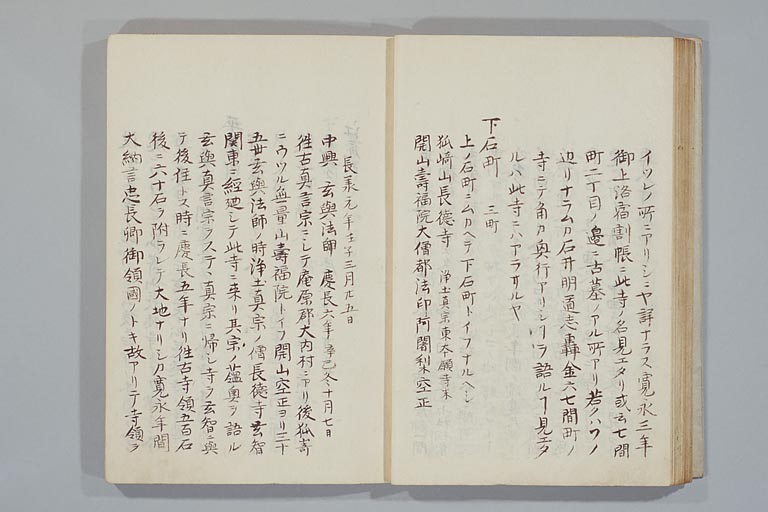 イツレノ所ニアリシニヤ詳ナラス寛永三年
御上洛宿割帳ニ此寺ノ名見エタリ或云七間
町二丁目ノ邊ニ古墓ノアル所アリ若クハワノ
辺リナラムカ石井明道志轟金六七間町ノ
寺ニテ角力興行アリシヿヲ語ルヿ見エタ
ルハ此寺ニハアラサルヤ
下石町 三町
上ノ石町ニムカヘテ下石町トイフナルヘシ
狐崎山長徳寺 浄土真宗東本願寺末
開山壽福院大僧都法印阿闍梨空正
長承元年壬子三月廿五日
中興 玄與法師 慶長六年辛丑冬十月七日
徃古真言宗ニシテ庵原郡大内村ニアリ後狐崎
ニウツル無量山壽福院トイフ開山空正ヨリ三十
五世玄與法師ノ時浄土真宗ノ僧長徳寺玄智
関東ニ經廻シテ此寺ニ来リ其宗ノ蘊奥ヲ語ル
玄與真言宗ヲステ、真宗ニ帰シ寺ヲ玄智ニ與
テ後住トス時ニ慶長五年ナリ徃古寺領五百石
後ニ六十石ヲ附ラレテ大地ナリシカ寛永年間
大納言忠長卿御領國ノトキ故アリテ寺領ヲ